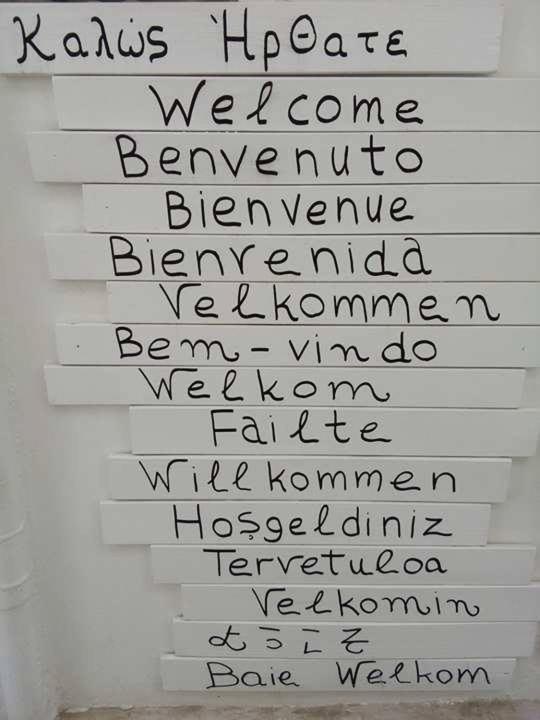 Καλώς Ήρθατε
Welcome
Benvenuto
Bienvenue
Bienvenida
Velkommen
Bem-vindo
Welkom
Failte
Willkommen
Hoşgeldiniz
Tervetuloa
Velkomin
ようこそ
Baie Welkom